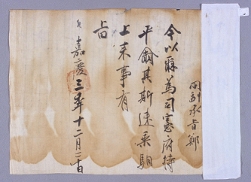 同副承旨鄭
今以爾爲司憲府持
平爾其斯速乘馹
上來事有
旨
嘉慶三年十二月 日